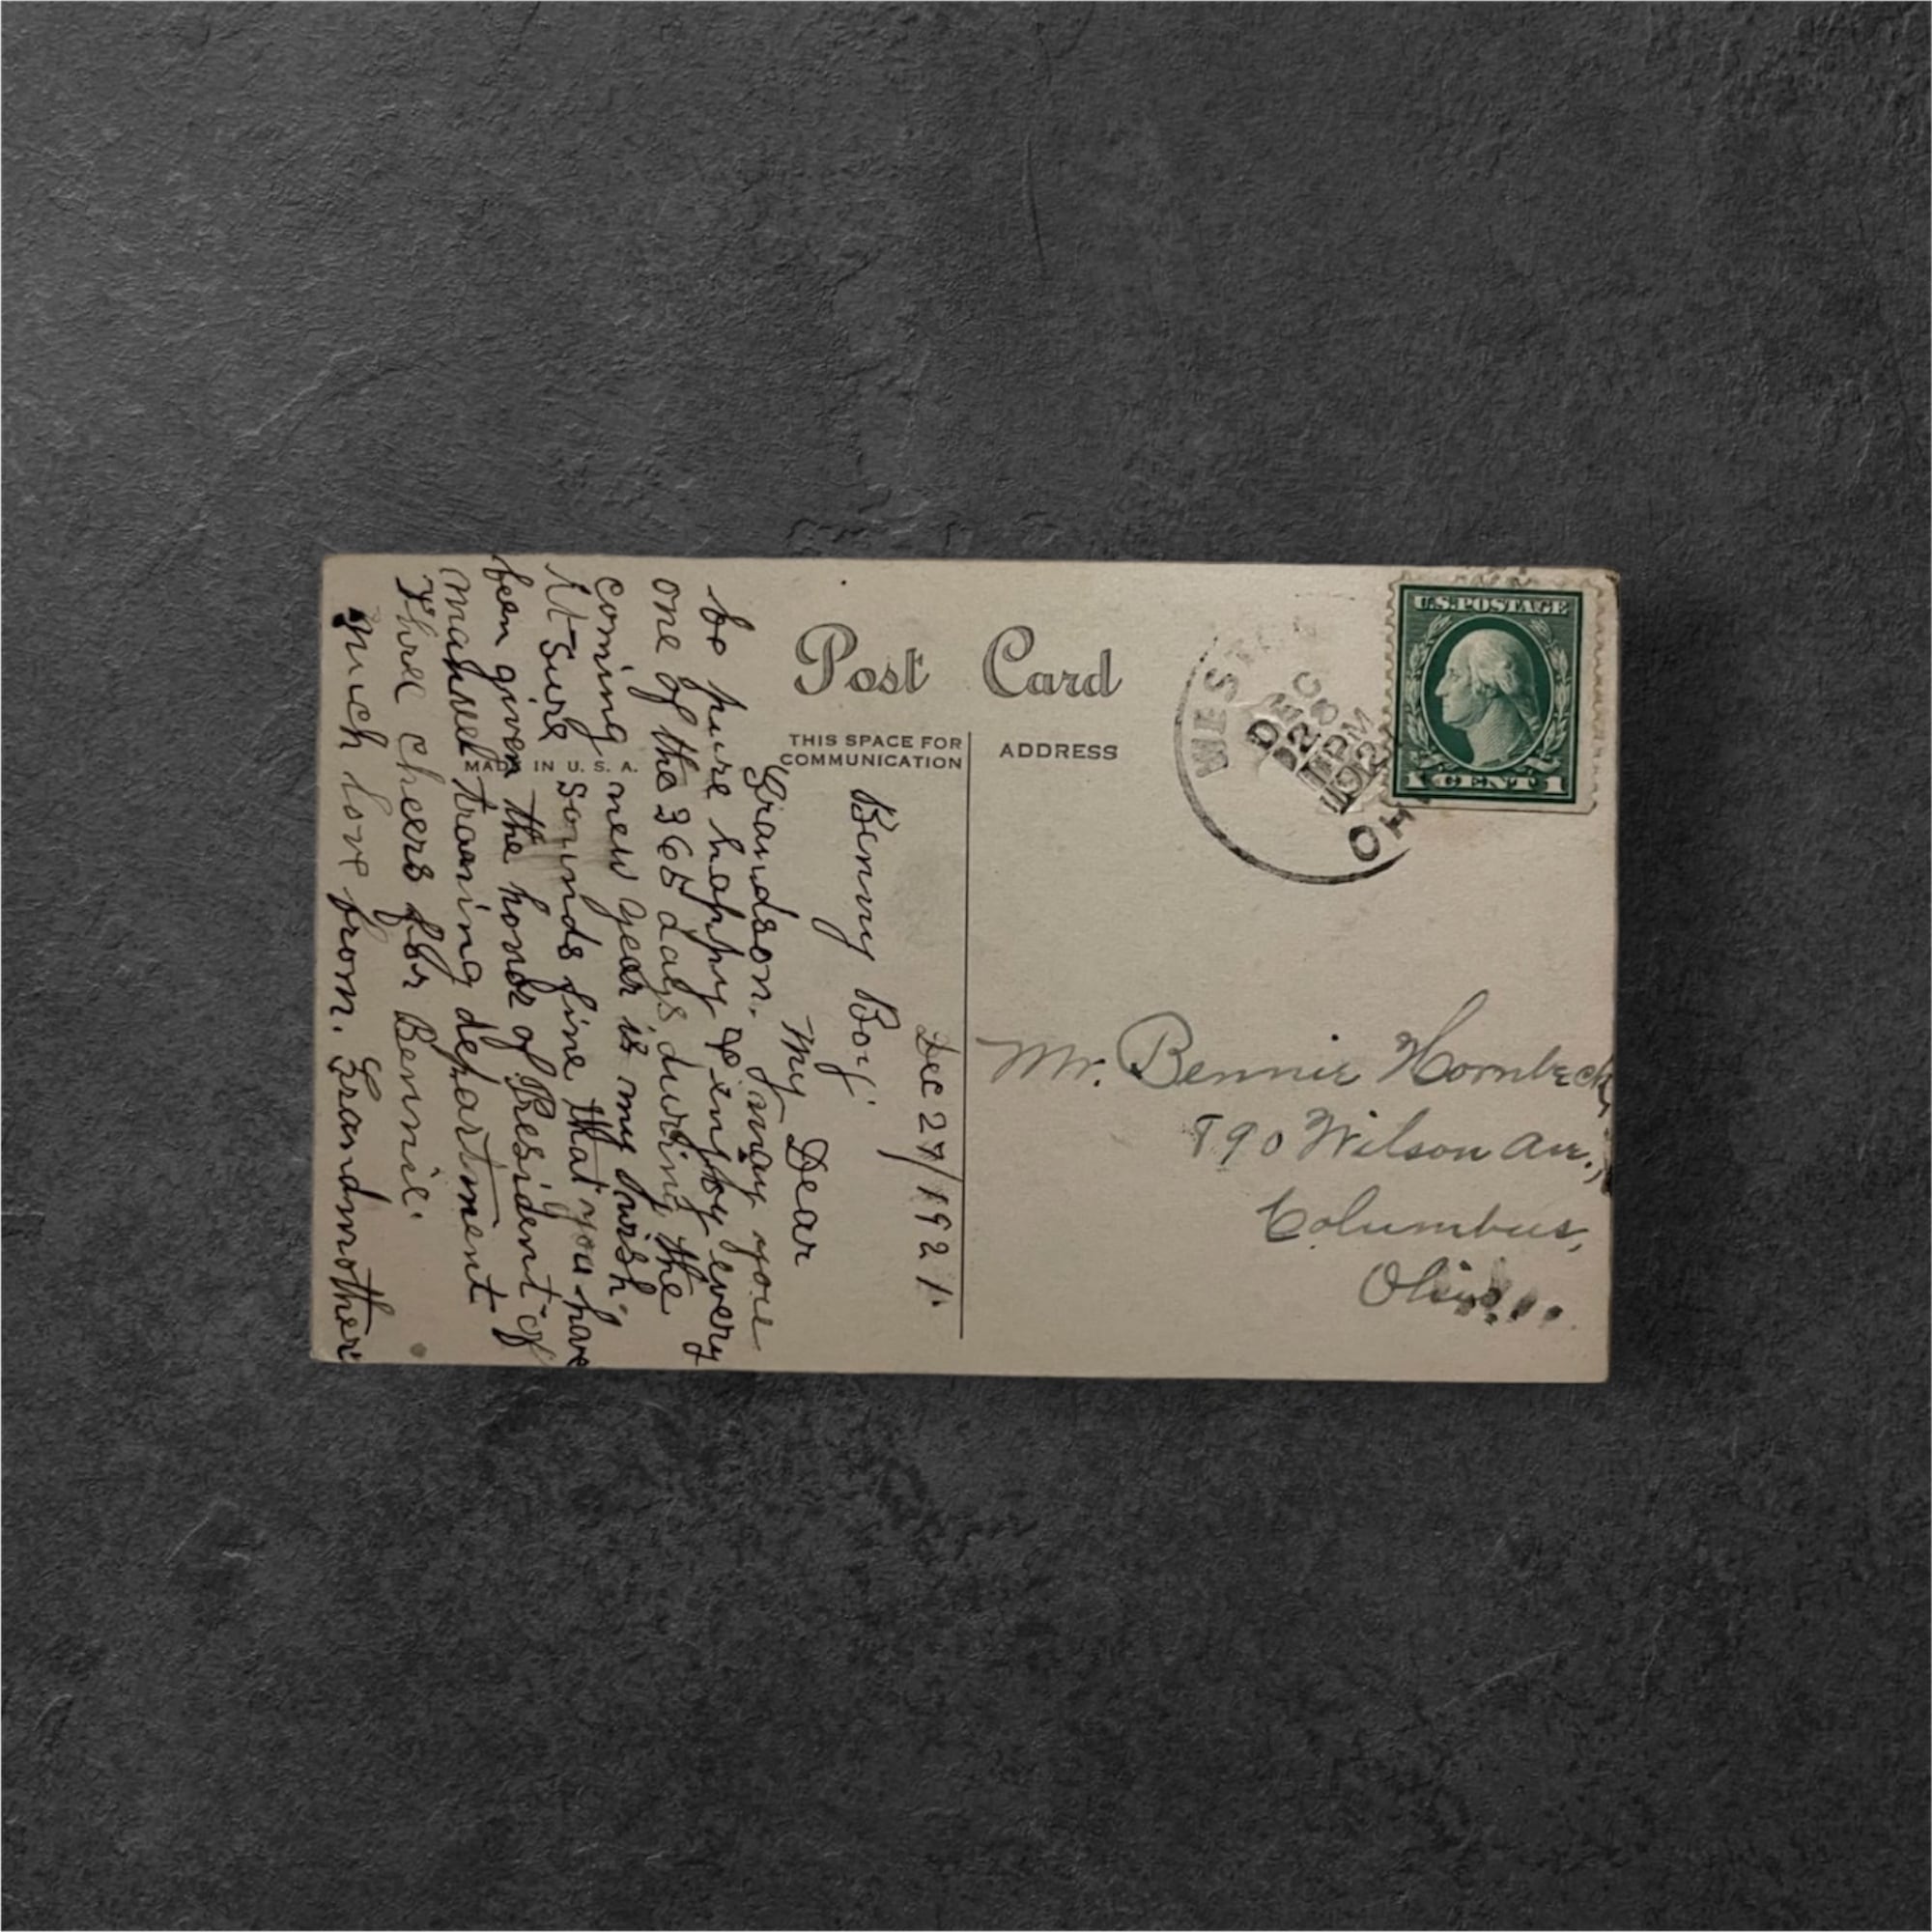 Post Card
THIS SPACE FOR
COMMUNICATION
ADDRESS
MADE IN U. S. A.
U.S. POSTAGE
1 CENT 1
DEC
28
PM
192
OH
Dec 27/1921.
Benny Boy
My Dear
Grandson. may you
be pure happy & injoy every
one of the 365 days during the
coming new year is my wish,
it sure sounds fine that you have
ben given the honor of President of
training department
three cheers for Bennie.
much love from. Grandmother
Mr. Bennie Hornbeck,
890 Wilson Ave.,
Columbus,
Ohio.